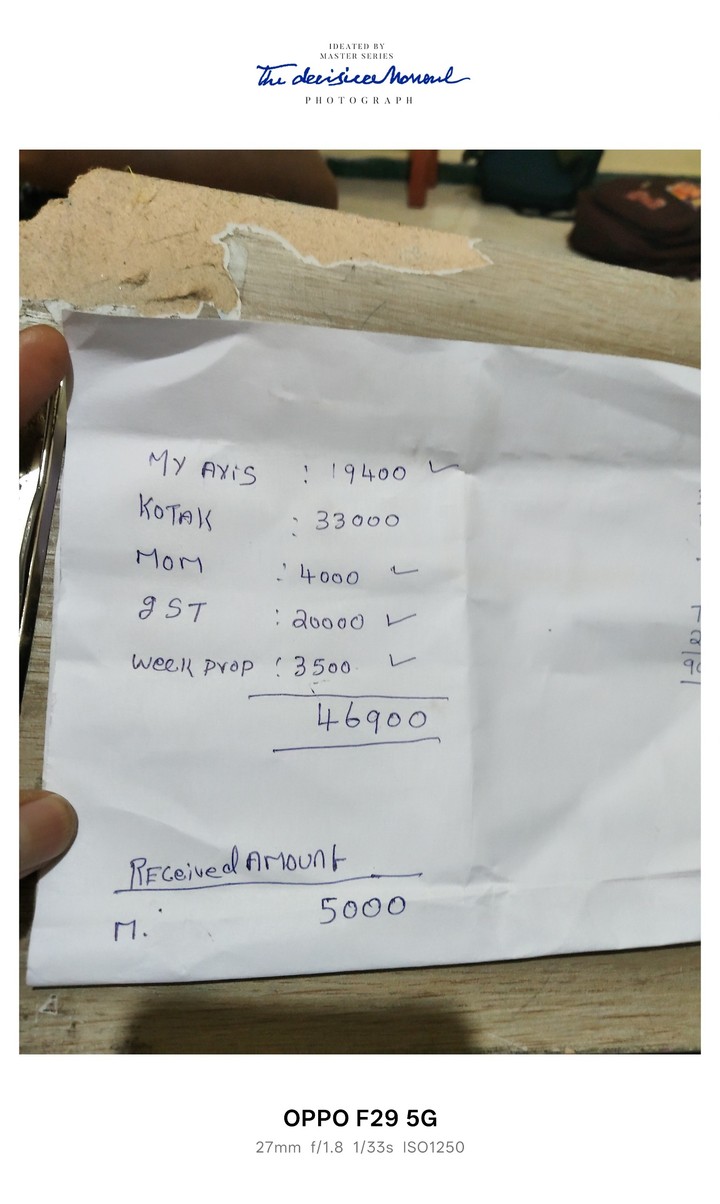 IDEATED BY
MASTER SERIES
PHOTOGRAPH
MY AXIS : 19400 ✓
KOTAK : 33000
MOM : 4000 ✓
gST : 20000 ✓
week prop : 3500 ✓
46900
REceived AMOUNt
5000
M.
OPPO F29 5G
27mm f/1.8 1/33s ISO1250